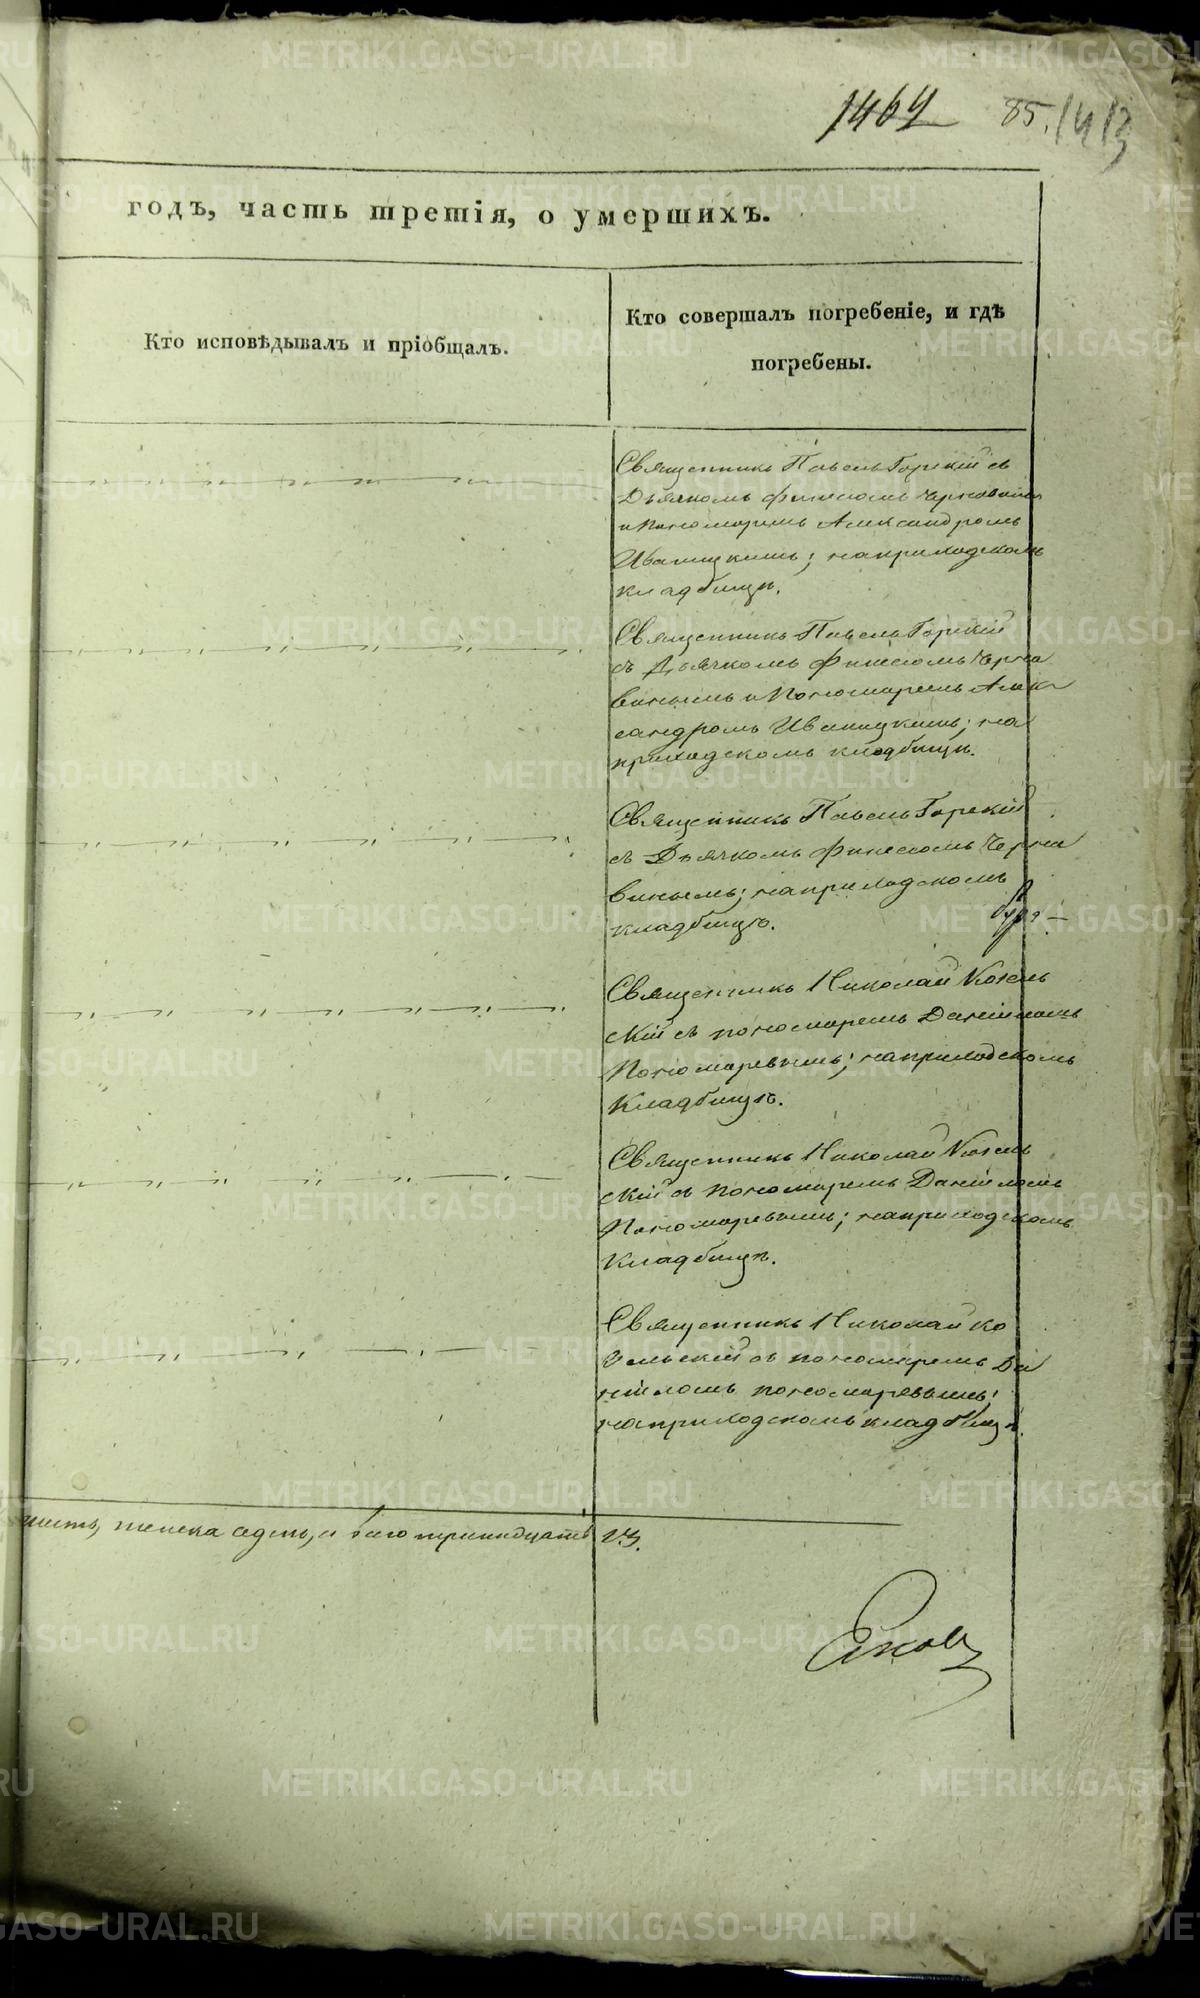 1464 85. 1413
годъ, часть третія, о умершихъ.
Кто исповѣдывалъ и пріобщалъ.
Кто совершалъ погребеніе, и гдѣ
погребены.
Священникъ Павелъ Горскій съ
Дьячкомъ Финеесомъ Чернавинымъ
и Пономаремъ Александромъ
Иваницкимъ; на приходскомъ
кладбищѣ.
Священникъ Павелъ Горскій
съ Дьячкомъ Финеесомъ Черна
винымъ и Пономаремъ Алек
сандромъ Иваницкимъ; на
приходскомъ кладбищѣ.
Священникъ Павелъ Горскій
съ Дьячкомъ Финеесомъ Черна
винымъ; на приходскомъ
кладбищѣ.
Священникъ Николай Котель
скій съ пономаремъ Даніиломъ
Пономаревымъ; на приходскомъ
Кладбищѣ.
Священникъ Николай Котель
скій съ пономаремъ Даніиломъ
Пономаревымъ; на приходскомъ
Кладбищѣ.
Священникъ Николай Ко
тельскій съ пономаремъ Да
ніиломъ Пономаревымъ;
на приходскомъ кладбищѣ.
женска седмь, и всего тринадцать
METRIKI.GASO-URAL.RU